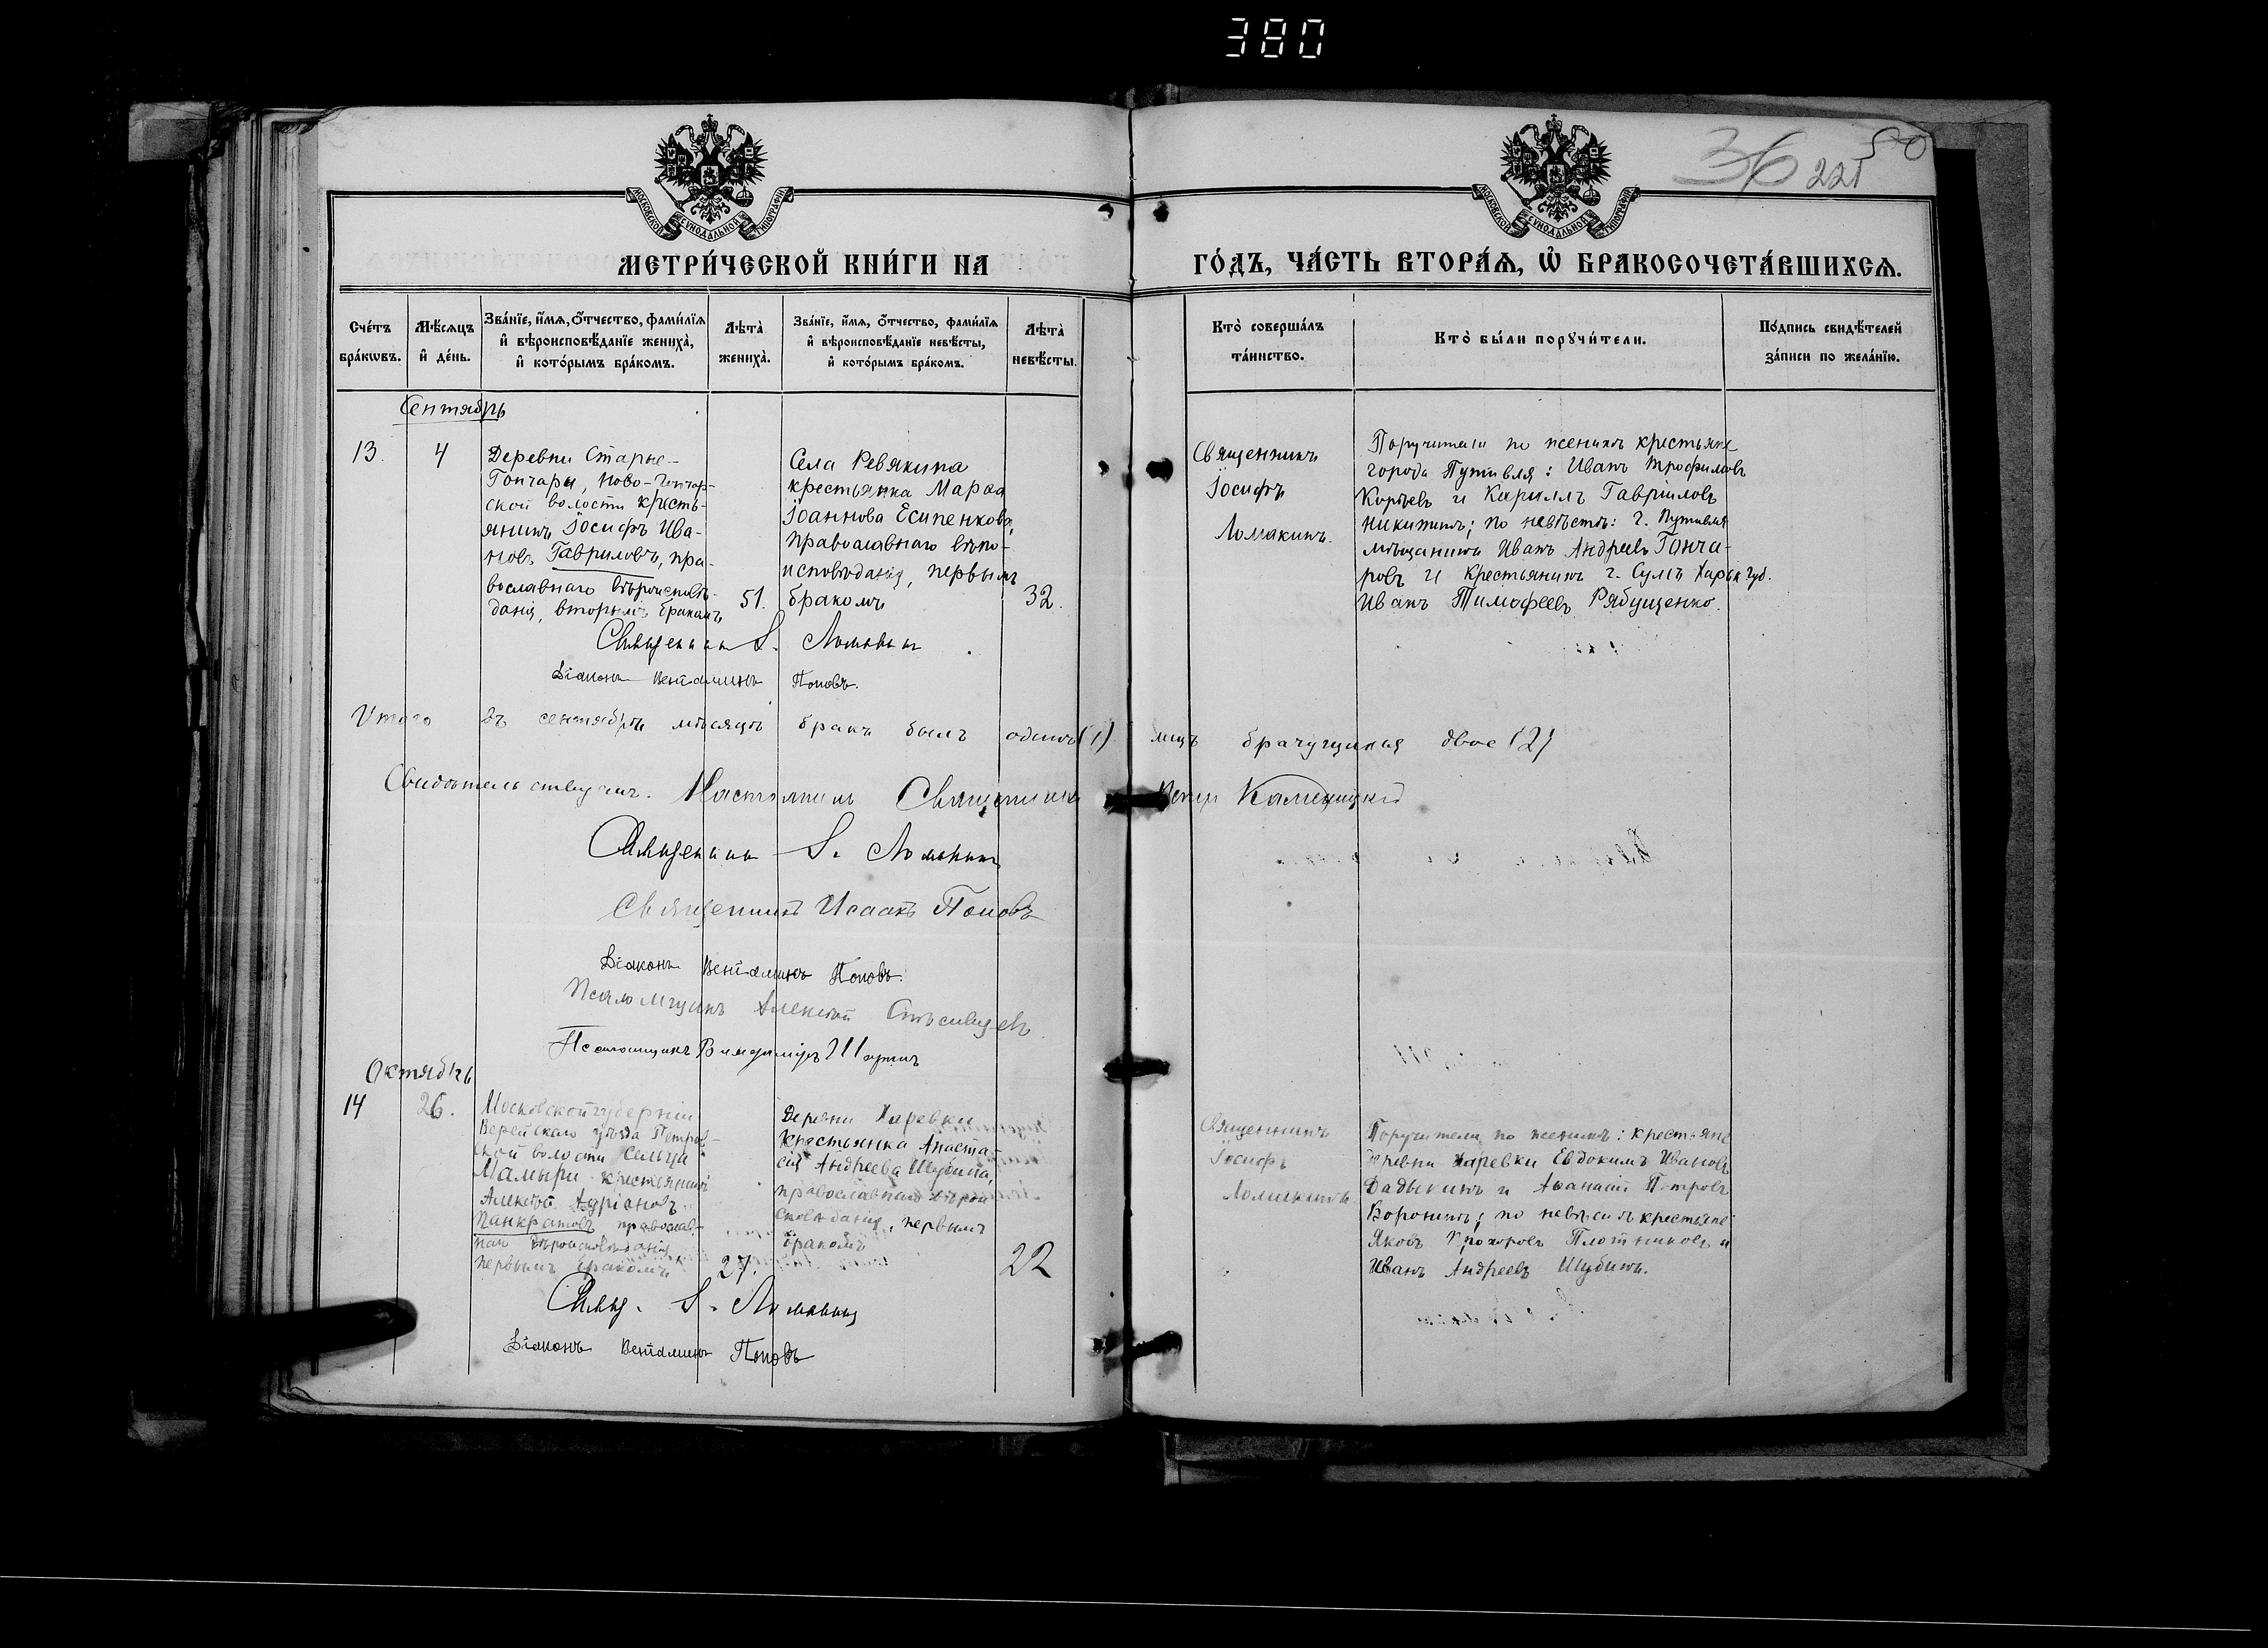 380
36 221 50
МОСКОВСКОЙ СУНОДАЛЬНОЙ ТИПОГРАФІИ
МОСКОВСКОЙ СУНОДАЛЬНОЙ ТИПОГРАФІИ
МЕТРИ́ЧЕСКОЙ КНИ́ГИ НА
ГО́ДЪ, ЧА́СТЬ ВТОРА́Ѧ, Ѡ҆ БРАКОСОЧЕТА́ВШИХСѦ.
Сче́тъ
бра́кѡвъ.
Мѣ́сѧцъ
и҆ де́нь.
Зва́нїе, и҆́мѧ, ѻ҆́тчество, фами́лїѧ
и҆ вѣроисповѣ́данїе жениха̀,
и҆ кото́рымъ бра́комъ.
Лѣта̀
жениха̀.
Зва́нїе, и҆́мѧ, ѻ҆́тчество, фами́лїѧ
и҆ вѣроисповѣ́данїе невѣ́сты,
и҆ кото́рымъ бра́комъ.
Лѣта̀
невѣ́сты.
Кто̀ соверша́лъ
та́инство.
Кто̀ бы́ли порꙋчи́тели.
По́дпись свидѣ́телей
за́писи по жела́нїю.
Сентябрь
13.
4
Деревни Старые-
Гончары, Ново-Гончар-
ской волости кресть-
янинъ Іосифъ Ива-
новъ Гавриловъ, пра-
вославнаго вѣроисповѣ-
данія, вторымъ бракомъ
51.
Села Ревякина
крестьянка Марѳа
Іоаннова Есипенкова,
православнаго вѣро-
исповѣданія, первымъ
бракомъ
32.
Священникъ
Іосифъ
Ломакинъ.
Поручители по женихѣ крестьяне
города Путивля: Иванъ Трофимовъ
и Кириллъ Гавриловъ
Никитинъ; по невѣстѣ: г. Путивля
мѣщанинъ Иванъ Андреевъ Гонча-
ровъ и крестьянинъ г. Сумъ Харьк. губ.
Иванъ Тимофеевъ Рябущенко.
Священникъ І. Ломакинъ
Діаконъ Веніаминъ Поповъ.
Итого въ сентябрѣ мѣсяцѣ бракъ былъ одинъ (1) лицъ двое (2)
Настоятель Священникъ Петръ
Священникъ І. Ломакинъ
Священникъ Исаакъ Поповъ
Діаконъ Веніаминъ Поповъ.
Псаломщикъ Алексѣй
Псаломщикъ Владиміръ
Октябрь
14
26.
Московской губерніи
Верейскаго уѣзда Петров-
ской волости сельца
Мамыри крестьянинъ
Алексѣй Адріановъ
Панкратовъ православ-
наго вѣроисповѣданія
первымъ бракомъ
27.
Деревни Харевки
крестьянка Анаста-
сія Андреева Шубина,
православнаго вѣрои-
сповѣданія, первымъ
бракомъ
22
Священникъ
Іосифъ
Ломакинъ
Поручители по женихѣ: крестьяне
деревни Харевки Евдокимъ Ивановъ
и Аѳанасій Петровъ
Воронинъ; по невѣстѣ крестьяне
Яковъ Прохоровъ Плотниковъ и
Иванъ Андреевъ Шубинъ.
Свящ. І. Ломакинъ
Діаконъ Веніаминъ Поповъ